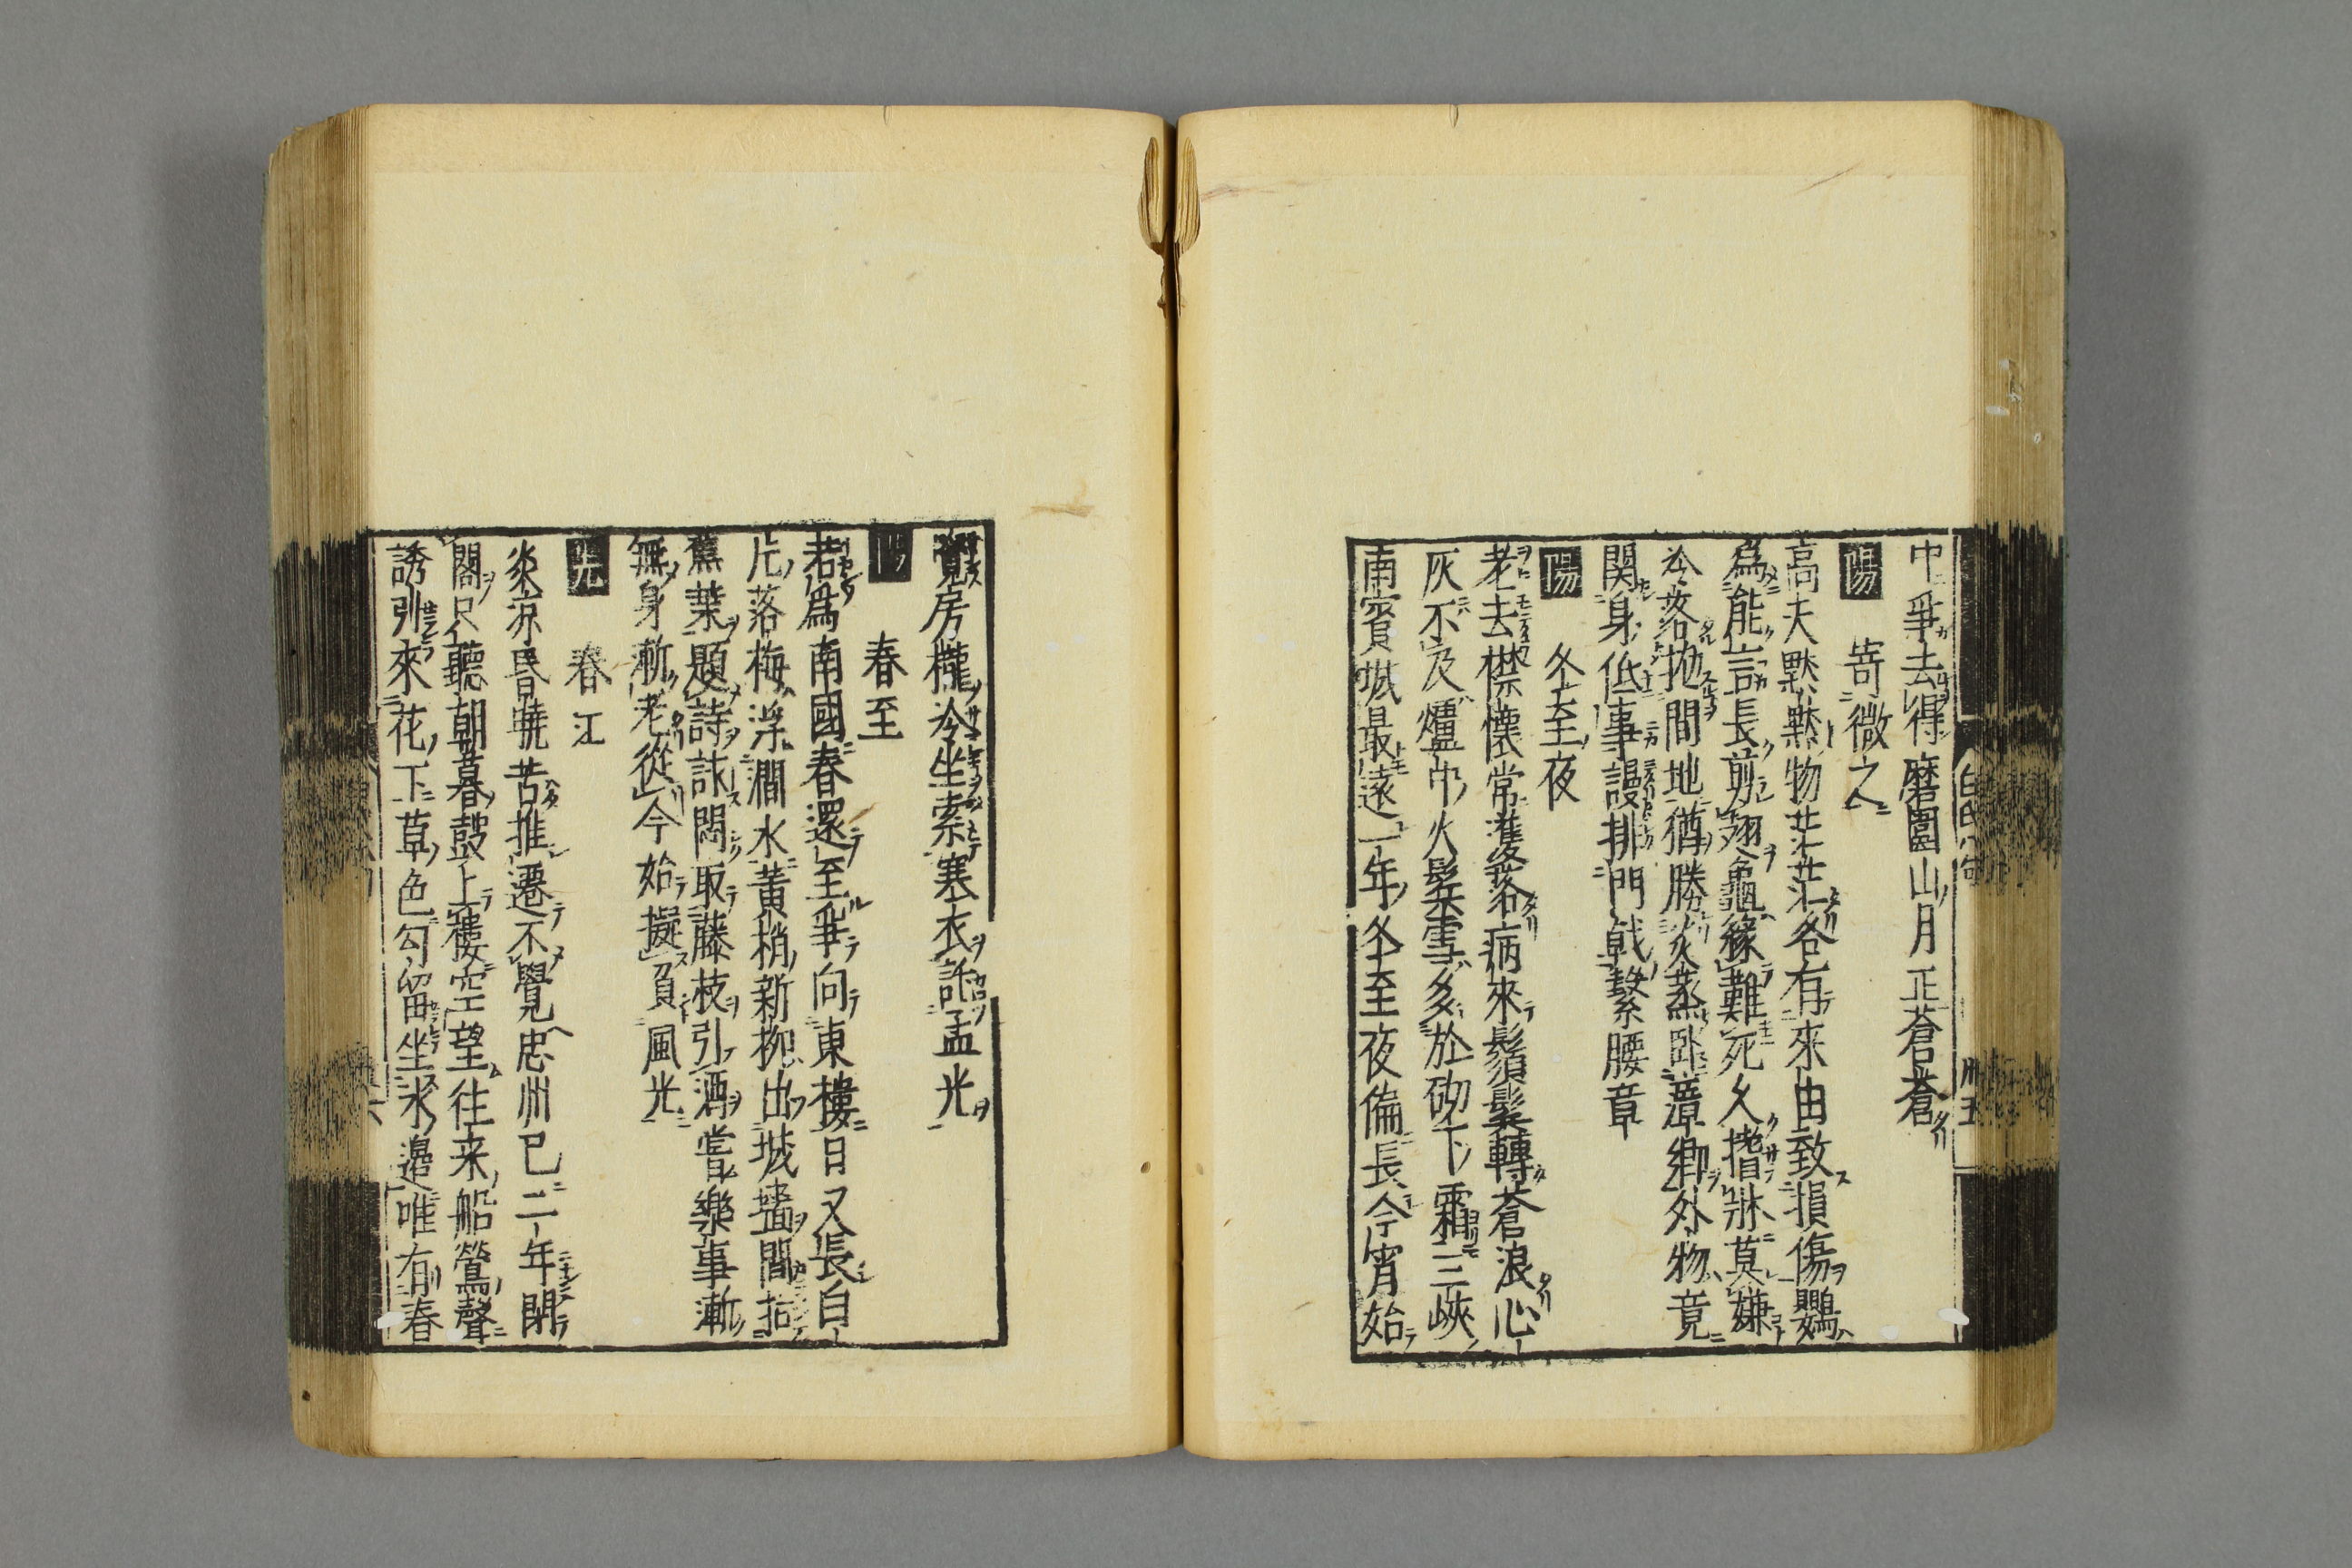 中爭去得磨圍山月正蒼蒼
陽 寄微之
高天默默物茫茫各有來由致損傷鸚
為能言長剪翅龜緣難死久搘牀莫嫌
冷落抛閒地猶勝炎蒸臥瘴鄉外物竟
関身低事謾排門戟繫腰章
陽 冬至夜
老去襟懷常濩落病來鬚髮轉蒼浪心
灰不及爐中火髮雪多於砌下霜三峽
南賓城最遠一年冬至夜偏長今宵始
覺房櫳冷坐索塞衣託孟光
陽 春至
若為南國春還至爭向東樓日又長白
片落梅浮澗水黃梢新柳出城墻閒拈
蕉葉題詩詠悶取藤枝引酒嘗樂事漸
無身漸老從今始擬負風光
先 春江
炎凉昏曉苦推遷不覺忠州已二年閉
閣只聽朝暮鼓上樓空望往来船鶯聲
誘引來花下草色勾留坐水邊唯有春